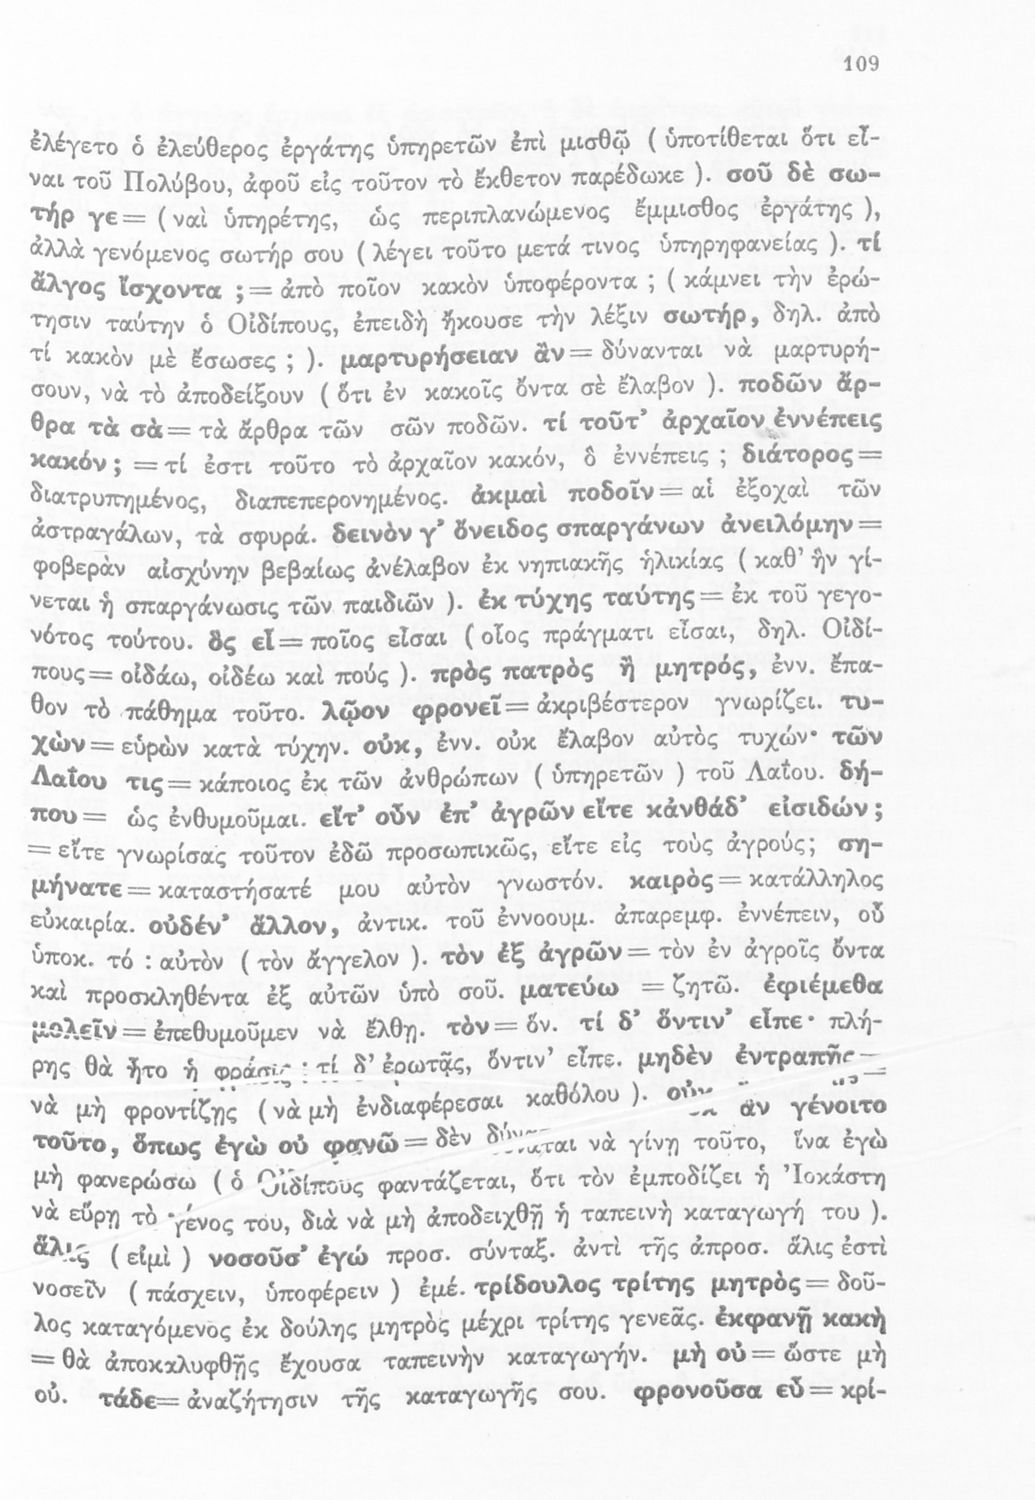 109
ἐλέγετο ὁ ἐλεύθερος ἐργάτης ὑπηρετῶν ἐπὶ μισθῷ ( ὑποτίθεται ὅτι εἶ-
ναι τοῦ Πολύβου, ἀφοῦ εἰς τοῦτον τὸ ἔκθετον παρέδωκε ). σοῦ δὲ σω-
τήρ γε = ( ναὶ ὑπηρέτης, ὡς περιπλανώμενος ἔμμισθος ἐργάτης ),
ἀλλὰ γενόμενος σωτήρ σου ( λέγει τοῦτο μετά τινος ὑπηρηφανείας ). τί
ἄλγος ἴσχοντα ; = ἀπὸ ποῖον κακὸν ὑποφέροντα ; ( κάμνει τὴν ἐρώ-
τησιν ταύτην ὁ Οἰδίπους, ἐπειδὴ ἤκουσε τὴν λέξιν σωτήρ, δηλ. ἀπὸ
τί κακὸν μὲ ἔσωσες ; ). μαρτυρήσειαν ἂν = δύνανται νὰ μαρτυρή-
σουν, νὰ τὸ ἀποδείξουν ( ὅτι ἐν κακοῖς ὄντα σὲ ἔλαβον ). ποδῶν ἄρ-
θρα τὰ σὰ = τὰ ἄρθρα τῶν σῶν ποδῶν. τί τοῦτ' ἀρχαῖον ἐννέπεις
κακόν ; = τί ἐστι τοῦτο τὸ ἀρχαῖον κακόν, ὃ ἐννέπεις ; διάτορος =
διατρυπημένος, διαπεπερονημένος. ἀκμαὶ ποδοῖν = αἱ ἐξοχαὶ τῶν
ἀστραγάλων, τὰ σφυρά. δεινὸν γ' ὄνειδος σπαργάνων ἀνειλόμην =
φοβερὰν αἰσχύνην βεβαίως ἀνέλαβον ἐκ νηπιακῆς ἡλικίας ( καθ' ἣν γί-
νεται ἡ σπαργάνωσις τῶν παιδιῶν ). ἐκ τύχης ταύτης = ἐκ τοῦ γεγο-
νότος τούτου. ὃς εἶ = ποῖος εἶσαι ( οἷος πράγματι εἶσαι, δηλ. Οἰδί-
πους = οἰδάω, οἰδέω καὶ πούς ). πρὸς πατρὸς ἢ μητρός, ἐνν. ἔπα-
θον τὸ πάθημα τοῦτο. λῷον φρονεῖ = ἀκριβέστερον γνωρίζει. τυ-
χὼν = εὑρὼν κατὰ τύχην. οὐκ, ἐνν. οὐκ ἔλαβον αὐτὸς τυχών· τῶν
Λαΐου τις = κάποιος ἐκ τῶν ἀνθρώπων ( ὑπηρετῶν ) τοῦ Λαΐου. δή-
που = ὡς ἐνθυμοῦμαι. εἴτ' οὖν ἐπ' ἀγρῶν εἴτε κἀνθάδ' εἰσιδών ;
= εἴτε γνωρίσας τοῦτον ἐδῶ προσωπικῶς, εἴτε εἰς τοὺς ἀγρούς; ση-
μήνατε = καταστήσατέ μου αὐτὸν γνωστόν. καιρὸς = κατάλληλος
εὐκαιρία. οὐδέν' ἄλλον, ἀντικ. τοῦ ἐννοουμ. ἀπαρεμφ. ἐννέπειν, οὗ
ὑποκ. τό : αὐτὸν ( τὸν ἄγγελον ). τὸν ἐξ ἀγρῶν = τὸν ἐν ἀγροῖς ὄντα
καὶ προσκληθέντα ἐξ αὐτῶν ὑπὸ σοῦ. ματεύω = ζητῶ. ἐφιέμεθα
μολεῖν = ἐπεθυμοῦμεν νὰ ἔλθῃ. τὸν = ὅν. τί δ' ὅντιν' εἶπε· πλή-
ρης θὰ ἦτο ἡ φράσις : τί δ' ἐρωτᾷς, ὅντιν' εἶπε. μηδὲν ἐντραπῇς =
νὰ μὴ φροντίζῃς ( νὰ μὴ ἐνδιαφέρεσαι καθόλου ). ἂν γένοιτο
τοῦτο, ὅπως ἐγὼ οὐ φανῶ = δὲν δύναται νὰ γίνῃ τοῦτο, ἵνα ἐγὼ
μὴ φανερώσω ( ὁ Οἰδίπους φαντάζεται, ὅτι τὸν ἐμποδίζει ἡ Ἰοκάστη
νὰ εὕρῃ τὸ γένος του, διὰ νὰ μὴ ἀποδειχθῇ ἡ ταπεινὴ καταγωγή του ).
ἅλις ( εἰμὶ ) νοσοῦσ' ἐγώ προσ. σύνταξ. ἀντὶ τῆς ἀπροσ. ἅλις ἐστὶ
νοσεῖν ( πάσχειν, ὑποφέρειν ) ἐμέ. τρίδουλος τρίτης μητρὸς = δοῦ-
λος καταγόμενος ἐκ δούλης μητρὸς μέχρι τρίτης γενεᾶς. ἐκφανῇ κακὴ
= θὰ ἀποκαλυφθῇς ἔχουσα ταπεινὴν καταγωγήν. μὴ οὐ = ὥστε μὴ
οὐ. τάδε = ἀναζήτησιν τῆς καταγωγῆς σου. φρονοῦσα εὖ = κρί-